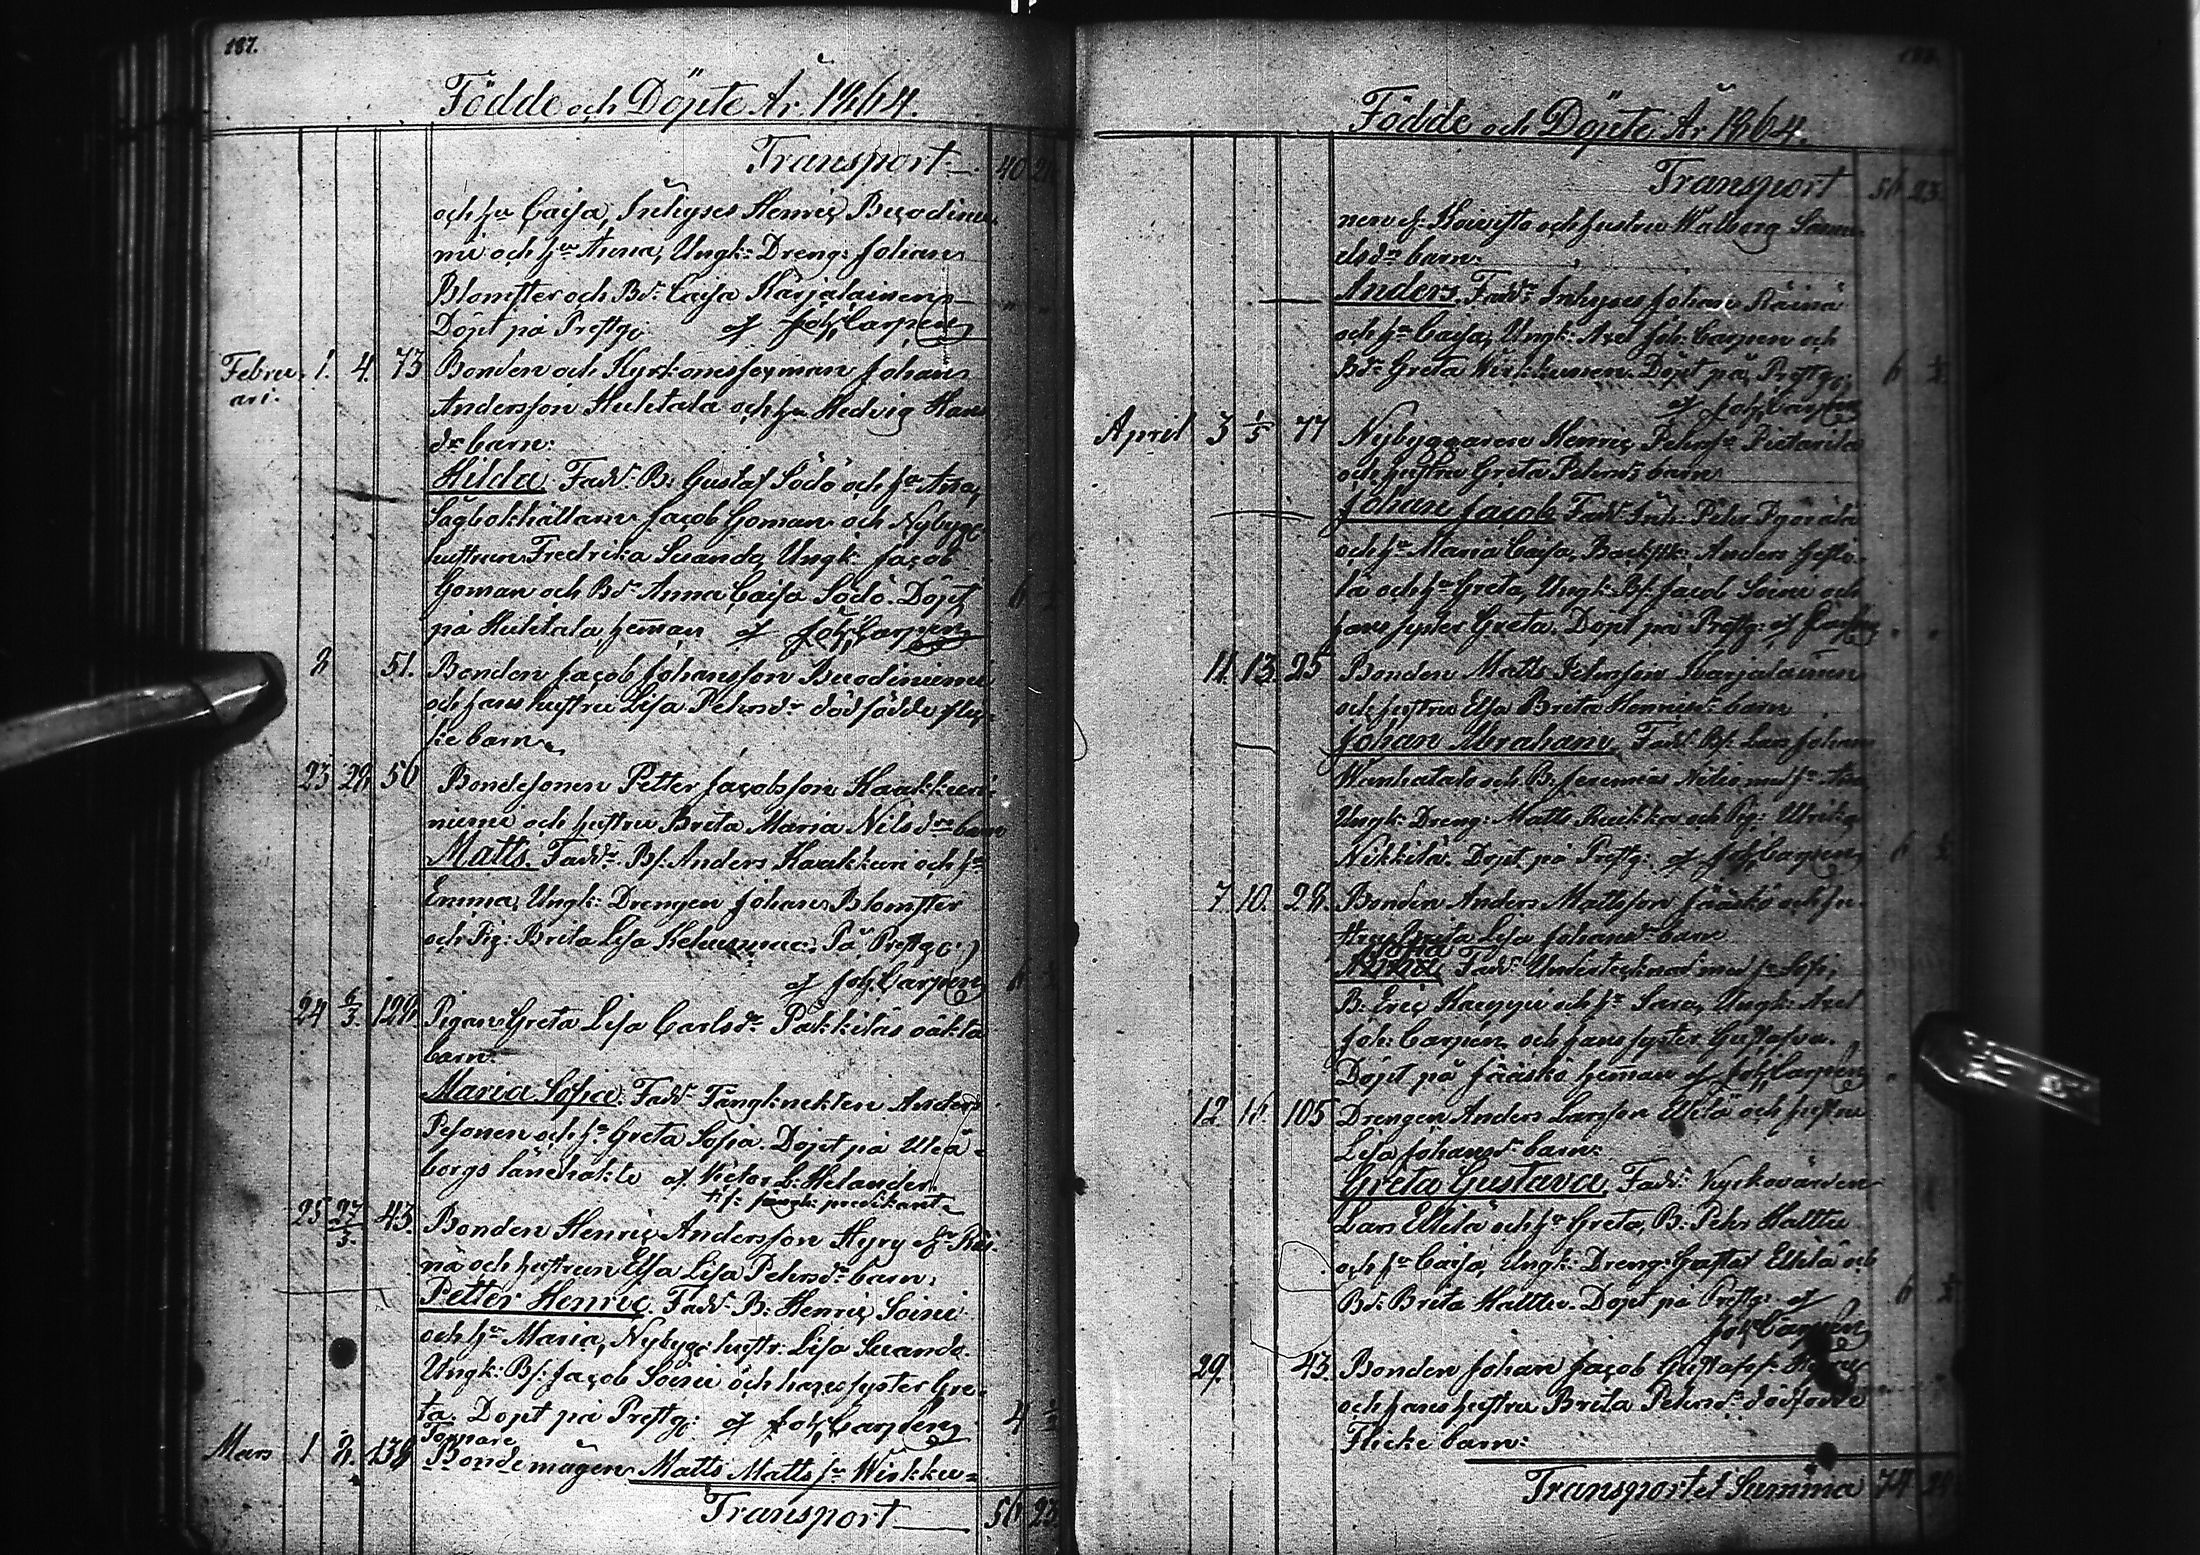 187.
Födde och Döpte År 1864.
Transport 40
och hu Caisa, Inhyses Henric Buodinie
mi och hu Anna, Ungk: Dreng: Johan
Blomster och Bd: Caisa Karjalainen
Döpt på Prestg: af Joh. Carpén
Februari. 1. 4. 73 Bonden och Kyrkones Johan
Andersson Huhtala och hu Hedvig Hans
dr barn:
Hilda Fadd: B: Gustaf Södö och hu Anna,
Jacob Goman och Nybygg:
hustrun Fredrika Suando, Ungk: Jacob
Goman och Bd: Anna Caisa Södö. Döpt 6
på Huhtala heman af Joh. Carpén
51. Bonden Jacob Johansson Buodiniemi
och hans hustru Lisa Pehrsdr dödfödde flic
ke barn
23 28 56 Bondesonen Petter Jacobsson Haakkuri
niemi och hustru Brita Maria Nilsdr barn
Matts. Fadd: Bs. Anders Haakkuri och hu
Emma, Ungk: Drengen Johan Blomster
och Pig: Brita Lisa På Prestg:
af Joh. Carpén 6
24 6/3. Pigan Greta Lisa Carlsdr Pakkilas oäkta
barn:
Maria Sofia. Fadd: Fångknekten Anders
Pesonen och hu Greta Sofia. Döpt på Uleå-
borgs länehäkte af Victor L: Helander
t.f: fängk: predikant.
25 27/3. 43. Bonden Henric Andersson Hyry Räi
nä och hustrun Elsa Lisa Pehrsdr barn,
Petter Henric. Fadd: B: Henric Soini
och hu Maria, Nybygg: hustr: Lisa Suando.
Ungk: Bs: Jacob Soini och hans syster Gre-
ta. Döpt på Prestg: af Joh. Carpén 4
Torpare
Mars 1 2. 138 Bondemågen Matts Matts sn Wirkku-
Transport 56 23
188.
Födde och Döpte År 1864.
Transport 56 23
nen f. och hustru Walborg Samu-
elsdr barn:
Anders. Fadd: Inhyses Johan Räinä
och hu Caisa, Ungk: Axel Joh: Carpén och
Bd: Greta Wirkkunen. Döpt på Prestg: 6
af Joh. Carpén
April 3 1/5 77 Nybyggaren Henric Pehrsn
och hustru Greta Pehrsd: barn
Johan Jacob Fadd: Inh: Pehr Pyörälä
och hu Maria Caisa, Backstk: Anders
lä och hu Greta, Ungk: Bs: Jacob Soini och
hans syster Greta. Döpt på Prestg: af
11. 13. 25 Bonden Matts Pehrsson Karjalainen
och hustru Elsa Brita Henricsdr barn
Johan Abraham, Fadd: Bs: Lars Johan
Wanhatalo och B: Jeremias med hu
Ungk: Dreng: Matts och Pig: Ulrika
Nikkilä. Döpt på Prestg: af Joh. Carpén 6
7. 10. 28. Bonden Anders Mattsson Jääskö och hu-
stru Lisa Johansd: barn
Fadd: Undertecknad med hu
B: Eric och hu Sara, Ungk: Axel
Joh: Carpén och hans syster Gustafva.
Döpt på Jääskö heman af Joh. Carpén
12. 16. 105 Drengen Anders Larsson Ellilä och hustru
Lisa Johansd: barn:
Greta Gustava. Fadd: Kyrkovärden
Lars Ellilä och hu Greta, B: Pehr Halttu
och hu Caisa, Ungk: Dreng: Gustaf Ellilä och
Bd: Brita Halttu. Döpt på Prestg: af 6
Joh. Carpén
29. 43. Bonden Johan Jacob Gustafs:
och hans hustru Brita Pehrsdr dödfödde
Flicke barn:
Transportet Summa 74